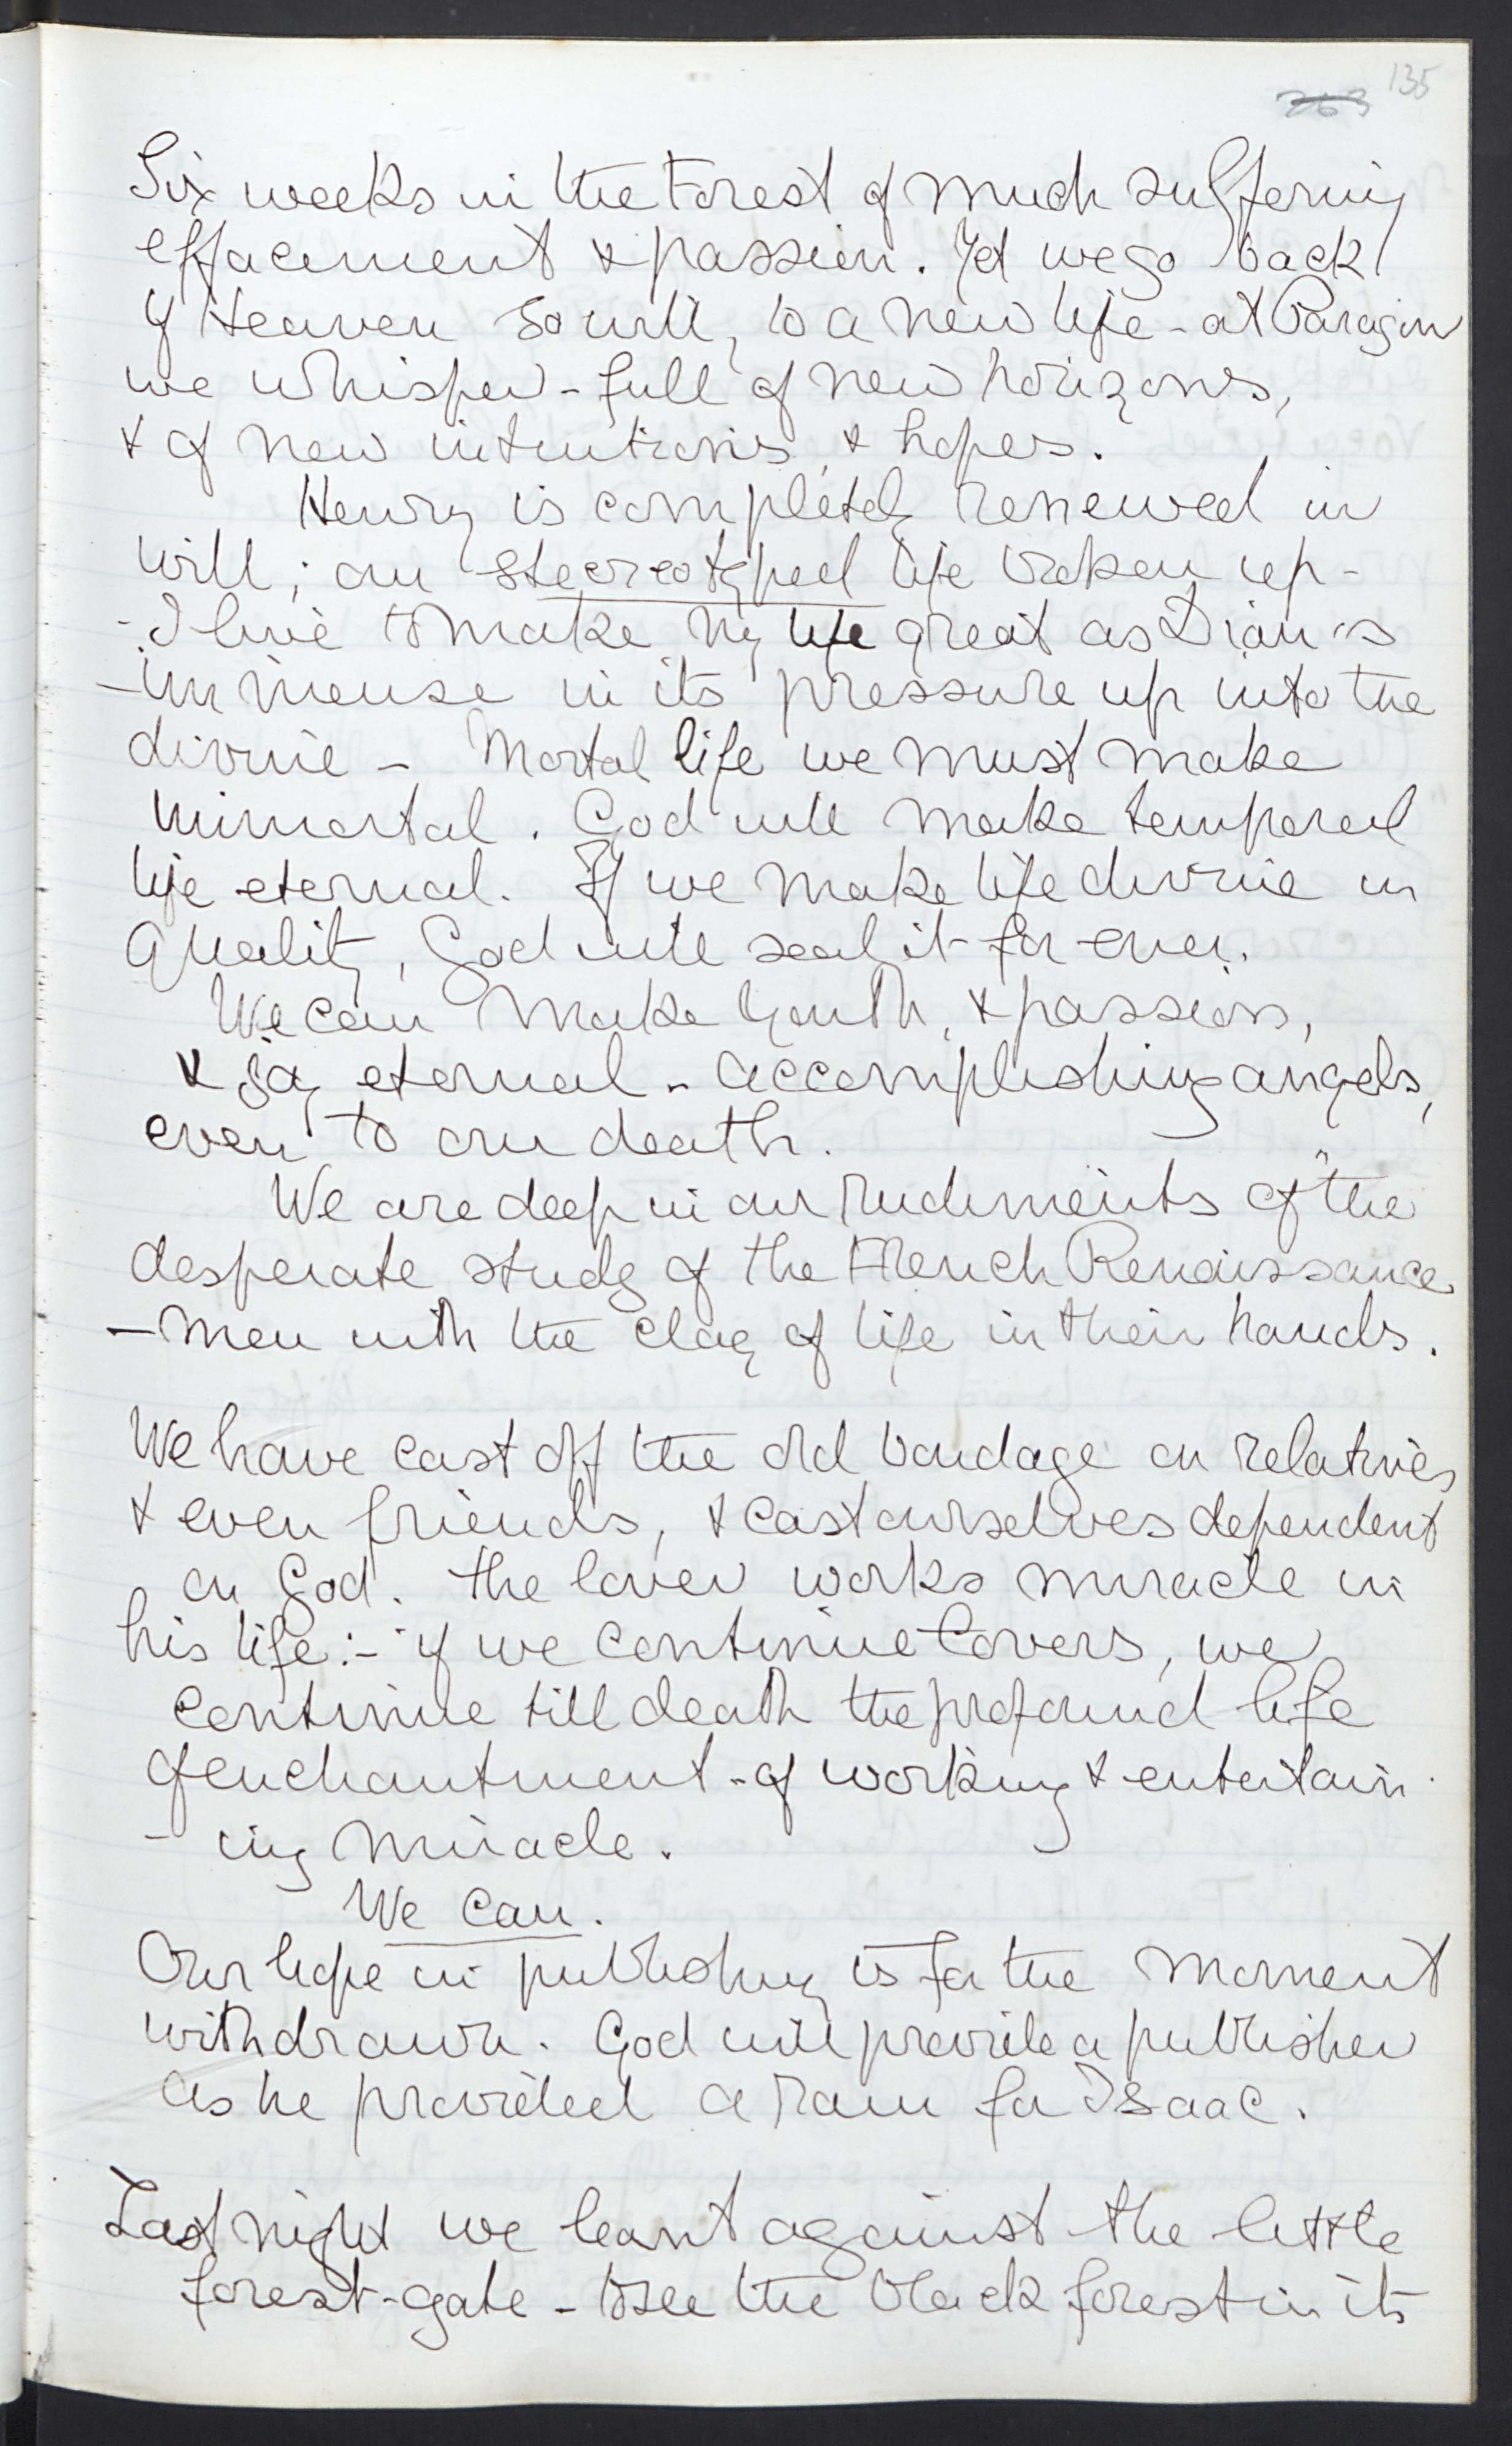 135
263
Six weeks in the Forest of much suffering
effacement & passion. Yet we go back
if Heaven so will, to a new life - at Paragon
we whisper - full of new horizons,
& of new intuitions, & hopes.
Henry is completely renewed in
will; our stereotyped life broken up -
- I live to make my life great as Dian's
- immense in its pressure up into the
divine - Mortal life we must make
immortal. God will make temporal
life eternal. If we make life divine in
quality, God will seal it for ever.
We can make Youth, & passion,
& joy eternal - accomplishing angels,
even to our death.
We are deep in our rudiments of the
desperate study of the French Renaissance
- men with the clay of life in their hands.
We have cast off the old bondage on relatives
& even friends, & cast ourselves dependent
on God. The lover works miracle in
his life :- if we continue lovers, we
continue till death the profound life
of enchantment - of working & entertain-
- ing miracle.
We can.
Our hope in publishing is for the moment
withdrawn. God will provide a publisher
as he provided a ram for Isaac.
Last night we leant against the little
forest-gate - to see the black forest in its